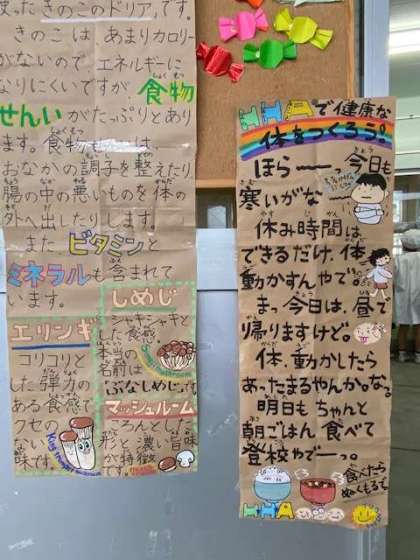 使ったきのこのドリアです。
きのこは、あまりカロリー
がないので、エネルギーに
なりにくいですが、食物
せんいがたっぷりとあり
ます。食物せんいは、
おなかの調子を整えたり、
腸の中の悪いものを体の
外へ出したりします。
また、ビタミンと
ミネラルも含まれて
います。
エリンギ
コリコリと
した弾力の
ある食感で
クセの
ない
味です。
King trumpet mushroom
しめじ
シャキシャキと
した食感
本当の
名前は
ぶなしめじです。
マッシュルーム
ころんとした
形と濃い旨味
が特徴
です。
で健康な
体をつくろう!
ほらー、今日も
寒いがなー
休み時間は、
できるだけ、体
動かすんやで。
まっ今日は、昼で
帰りますけど。
体、動かしたら
あったまるやんか。なっ。
明日もちゃんと
朝ごはん、食べて
登校やでーっ。
食べたら
ぬくもるで